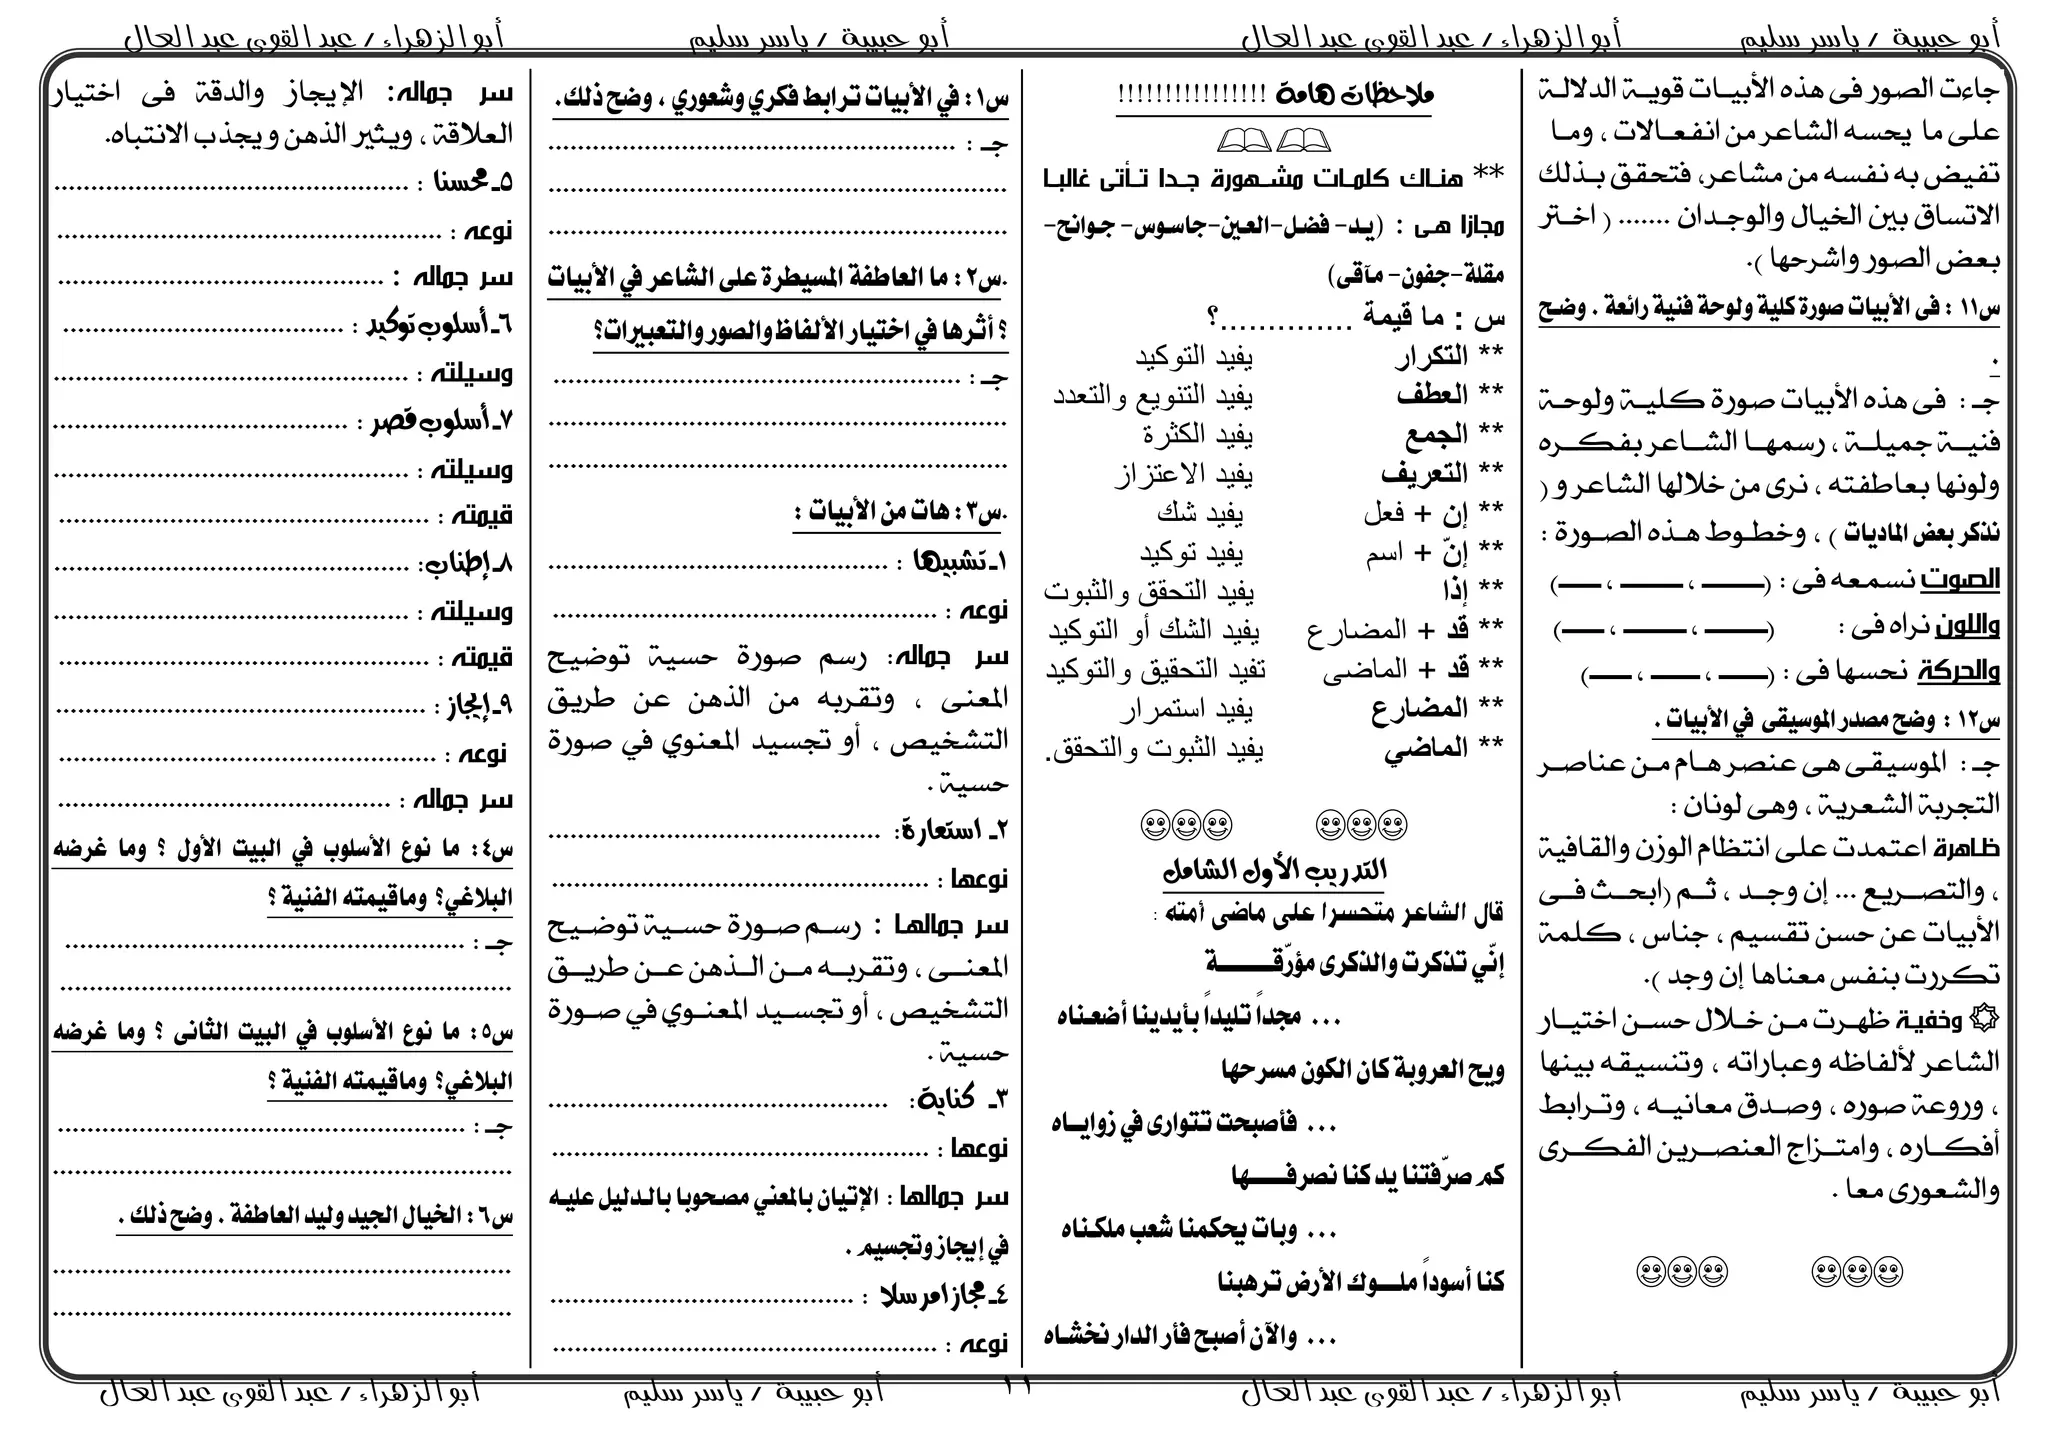 أبو حبيبة / ياسر سليم
أبو الزهراء / عبد القوى عبد العال
أبو حبيبة / ياسر سليم
أبو الزهراء / عبد القوى عبد العال
جاءت الصور فى هذه الأبيـات قويـة الدلالـة
على ما يحسه الشاعر من انفعـالات ، ومـا
تفيض به نفسه من مشاعر، فتحقق بـذلك
الاتساق بين الخيال والوجـدان ....... ( اخـتر
بعض الصور واشرحها ).
س١١ : فى الأبيات صورة كلية ولوحة فنية رائعة . وضـح
.
جـ : فى هذه الأبيات صورة كليـة ولوحـة
فنيـة جميلـة ، رسمهـا الشـاعر بفكـره
ولونها بعاطفته ، نرى من خلالها الشاعر و (
نذكر بعض الماديات ) ، وخطـوط هـذه الصـورة :
الصوت نسمعه فى : (ــــــ ، ــــــ ، ــــــ)
واللون نراه فى : (ــــــ ، ــــــ ، ــــــ)
والحركة نحسها فى : (ــــــ ، ــــــ ، ــــــ)
س١٢ : وضح مصدر الموسيقى في الأبيات .
جـ : الموسيقى هى عنصر هـام مـن عناصـر
التجربة الشعرية ، وهى لونان :
ظاهرة اعتمدت على انتظام الوزن والقافية
، والتصـريع ... إن وجـد ، ثـم (ابحـث فـى
الأبيات عن حسن تقسيم ، جناس ، كلمة
تكررت بنفس معناها إن وجد ).
۞ وخفية ظهـرت مـن خـلال حسـن اختيـار
الشاعر لألفاظه وعباراته ، وتنسيقه بينها
، وروعة صوره ، وصـدق معانيـه ، وتـرابط
أفكـاره ، وامتـزاج العنصـرين الفكـرى
والشعورى معا .
☺☺☺ ☺☺☺
ملاحظات هامة !!!!!!!!!!!!!!!!
** هنـاك كلمـات مشـهورة جـدا تـأتى غالبـا
مجازا هـى : (يـد- فضـل-العـين-جاسـوس- جـوانح-
مقلة-جفون- مآقى)
س : ما قيمة ..............؟
** التكرار يفيد التوكيد
** العطف يفيد التنويع والتعدد
** الجمع يفيد الكثرة
** التعريف يفيد الاعتزاز
** إن + فعل يفيد شك
** إنّ + اسم يفيد توكيد
** إذا يفيد التحقق والثبوت
** قد + المضارع يفيد الشك أو التوكيد
** قد + الماضى تفيد التحقيق والتوكيد
** المضارع يفيد استمرار
** الماضي يفيد الثبوت والتحقق.
☺☺☺ ☺☺☺
التدريب الأول الشامل
قال الشاعر متحسرا على ماضى أمته :
إنّي تذكرت والذكرى مؤرّقــــة
... مجداً تليداً بأيدينا أضعناه
ويح العروبة كان الكون مسرحها
... فأصبحت تتوارى في زوايـاه
كم صرّفتنا يد كنا نصرفـــها
... وبات يحكمنا شعب ملكـناه
كنا أسوداً ملــوك الأرض ترهبنا
... والآن أصبح فأر الدار نخشـاه
س١: في الأبيات ترابط فكري وشعوري ، وضح ذلك.
جـ : ........................................................
...............................................................
...............................................................
.س٢: ما العاطفة المسيطرة على الشاعر في الأبيات
؟ أثرها في اختيار الألفاظ والصور والتعبيرات؟
جـ : ........................................................
...............................................................
...............................................................
.س٣: هات من الأبيات :
١ـ تشبيها : ...............................................
نوعه : .....................................................
سر جماله: رسم صورة حسية توضيح
المعنى ، وتقربه من الذهن عن طريق
التشخيص ، أو تجسيد المعنوي في صورة
حسية .
٢ـ استعارة: ..............................................
نوعها : ....................................................
سر جمالهـا : رسـم صـورة حسـية توضـيح
المعنـى ، وتقربـه مـن الـذهن عـن طريـق
التشخيص ، أو تجسـيد المعنـوي في صـورة
حسية .
٣ـ كناية: ...............................................
نوعها : ....................................................
سر جمالها : الإتيان بالمعني مصحوبا بالـدليل عليـه
في إيجاز وتجسيم .
٤ـ مجازا مرسلا : ..........................................
نوعه : .....................................................
سر جماله: الإيجاز والدقة فى اختيار
العلاقة ، ويثير الذهن ويجذب الانتباه.
٥ـ محسنا : .................................................
نوعه : .....................................................
سر جماله : .............................................
٦ـ أسلوب توكيد : .......................................
وسيلته : .................................................
٧ـ أسلوب قصر : .........................................
وسيلته : .................................................
قيمته : ...................................................
٨ـ إطناب: .................................................
وسيلته : .................................................
قيمته : ...................................................
٩ـ إيجاز : ...................................................
نوعه : ....................................................
سر جماله : ..............................................
س٤: ما نوع الأسلوب في البيت الأول ؟ وما غرضه
البلاغي؟ وماقيمته الفنية ؟
جـ : .......................................................
..............................................................
س٥: ما نوع الأسلوب في البيت الثانى ؟ وما غرضه
البلاغي؟ وماقيمته الفنية ؟
جـ : ........................................................
...............................................................
س٦: الخيال الجيد وليد العاطفة . وضح ذلك .
...............................................................
...............................................................
أبو حبيبة / ياسر سليم
أبو الزهراء / عبد القوى عبد العال
١١
أبو حبيبة / ياسر سليم
أبو الزهراء / عبد القوى عبد العال